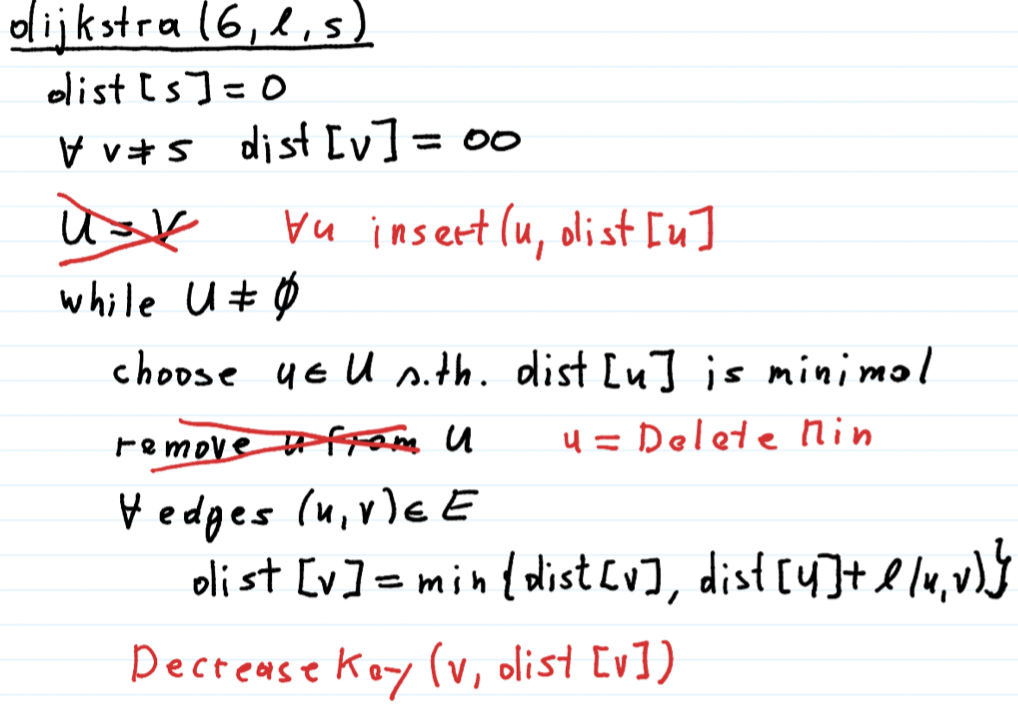 dijkstra (G, l, s)
dist [s] = 0
∀ v ≠ s dist [v] = ∞
U = V ∀u insert (u, dist [u]
while U ≠ ∅
choose u ∈ U s.th. dist [u] is minimal
remove u from U u = Delete Min
∀ edges (u, v) ∈ E
dist [v] = min { dist [v], dist [u] + l (u, v)}
Decrease Key (v, dist [v])